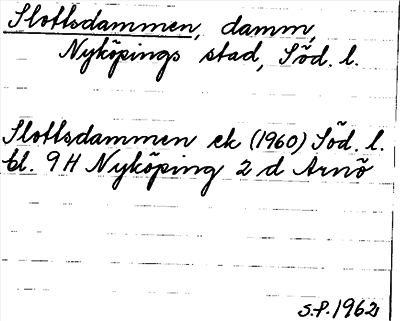 Slottsdammen, damm,
Nyköpings stad, Söd. l.
Slottsdammen ek (1960) Söd. l.
bl. 9 H Nyköping 2 d Arnö
S.P. 1962